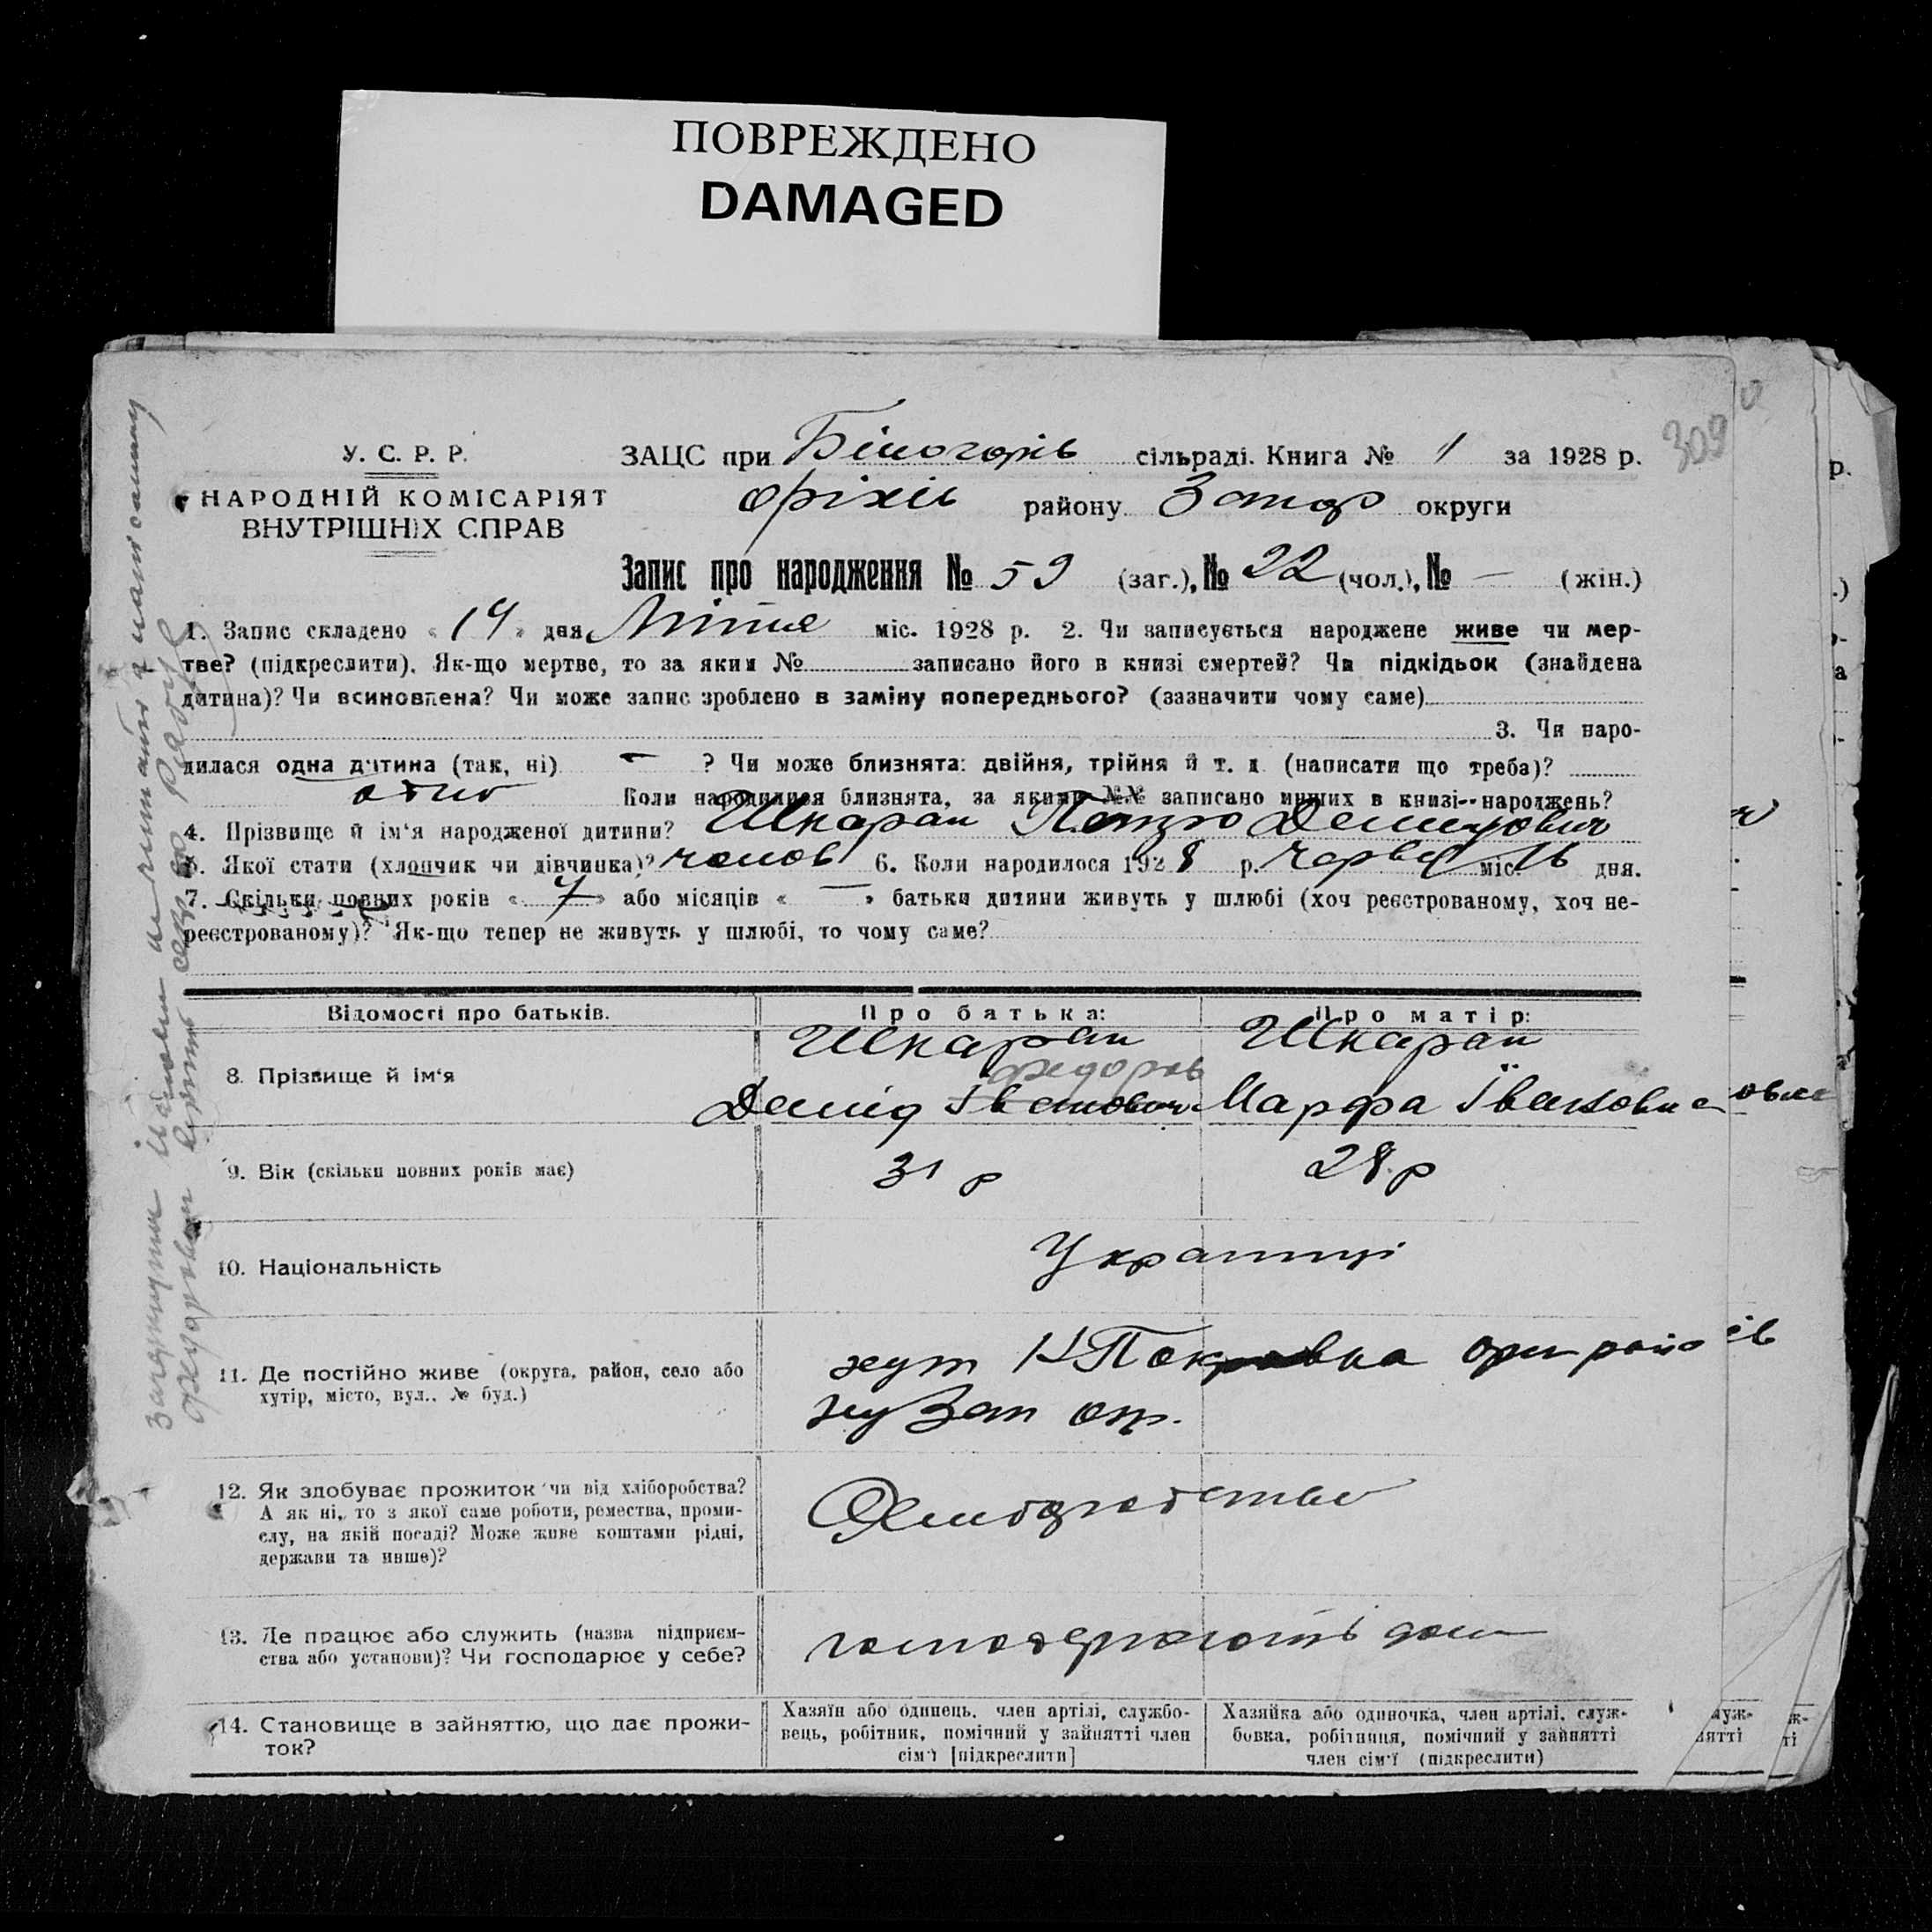 ПОВРЕЖДЕНО
DAMAGED
309
У. С. Р. Р.
НАРОДНІЙ КОМІСАРІЯТ
ВНУТРІШНІХ СПРАВ
ЗАЦС при Білогорів сільраді. Книга № 1 за 1928 р.
Оріхів району Запор округи
Запис про народження № 59 (заг.), № 22 (чол.), № — (жін.)
1. Запис складено « 14 » дня Липня міс. 1928 р. 2. Чи записується народжене живе чи мер-
тве? (підкреслити). Як-що мертве, то за яким № записано його в книзі смертей? Чи підкідьок (знайдена
дитина)? Чи всиновлена? Чи може запис зроблено в заміну попереднього? (зазначити чому саме)
3. Чи наро-
дилася одна дитина (так, ні) — ? Чи може близнята: двійня, трійня й т. д. (написати що треба)?
одно Коли народилися близнята, за якими №№ записано инших в книзі народжень?
4. Прізвище й ім'я народженої дитини? Шкарап Демидович
5. Якої стати (хлопчик чи дівчинка)? чолов 6. Коли народилося 1928 р. Червня міс. 16 дня.
7. Скільки повних років « 7 » або місяців « — » батьки дитини живуть у шлюбі (хоч реєстрованому, хоч не-
реєстрованому)? Як-що тепер не живуть у шлюбі, то чому саме?
Відомості про батьків. Про батька: Про матір:
8. Прізвище й ім'я
Шкарап Шкарап
Федоров
Демід Іванович Марфа Івановна
9. Вік (скільки повних років має) 31 р 28 р
10. Національність Українці
11. Де постійно живе (округа, район, село або
хутір, місто, вул., № буд.)
хут Н Покровка Оріх райо
ну Зап окр.
12. Як здобуває прожиток чи від хліборобства?
А як ні, то з якої саме роботи, ремества, проми-
слу, на якій посаді? Може живе коштами рідні,
держави та инше)?
Хліборобство
13. Де працює або служить (назва підприєм-
ства або установи)? Чи господарює у себе?
господарюють дома
14. Становище в зайняттю, що дає прожи-
ток?
Хазяїн або одинець, член артілі, службо-
вець, робітник, помічний у зайнятті член
сім'ї [підкреслити]
Хазяйка або одиночка, член артілі, служ-
бовка, робітниця, помічний у зайнятті
член сім'ї (підкреслити)